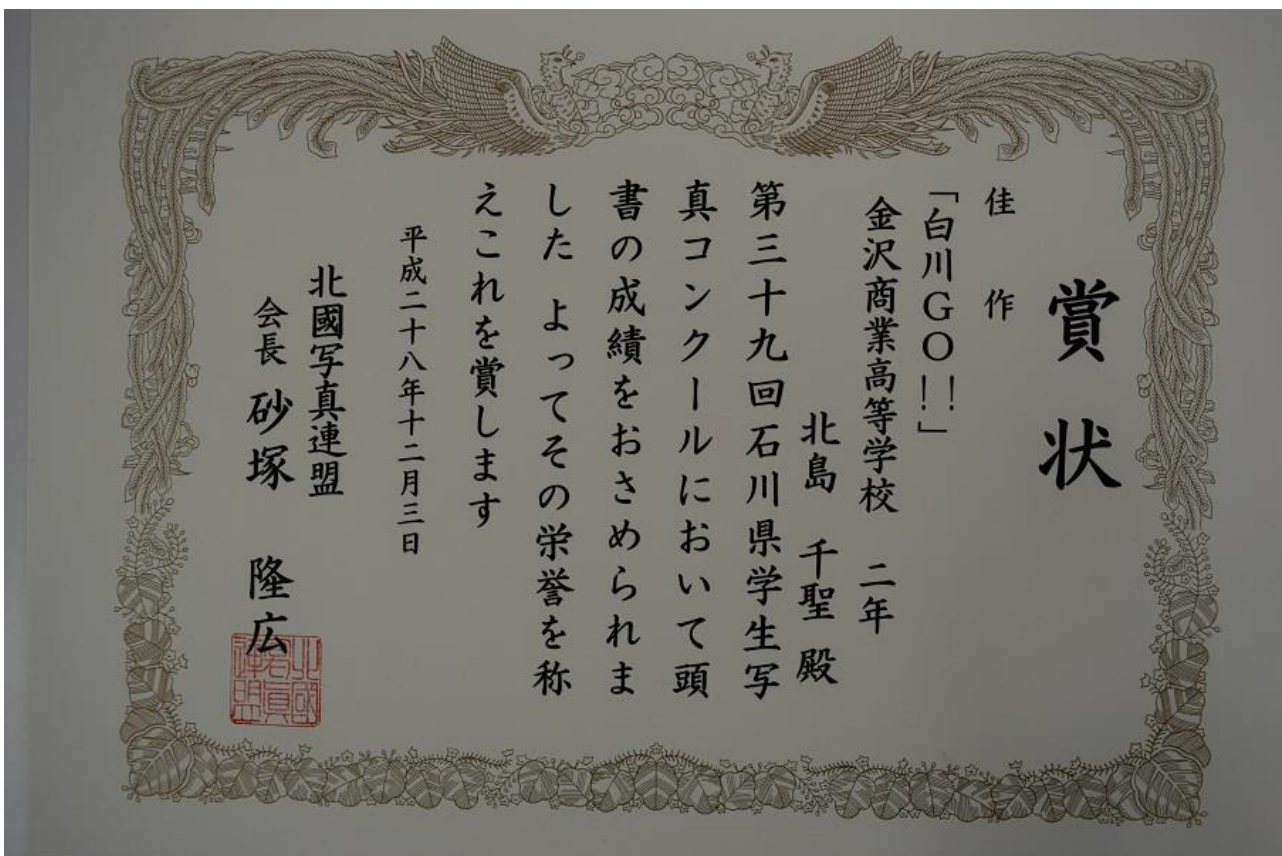 賞状
佳作
「白川GO!!」
金沢商業高等学校 二年
北島 千聖 殿
第三十九回石川県学生写
真コンクールにおいて頭
書の成績をおさめられま
した よってその栄誉を称
えこれを賞します
平成二十八年十二月三日
北國写真連盟
会長 砂塚 隆広